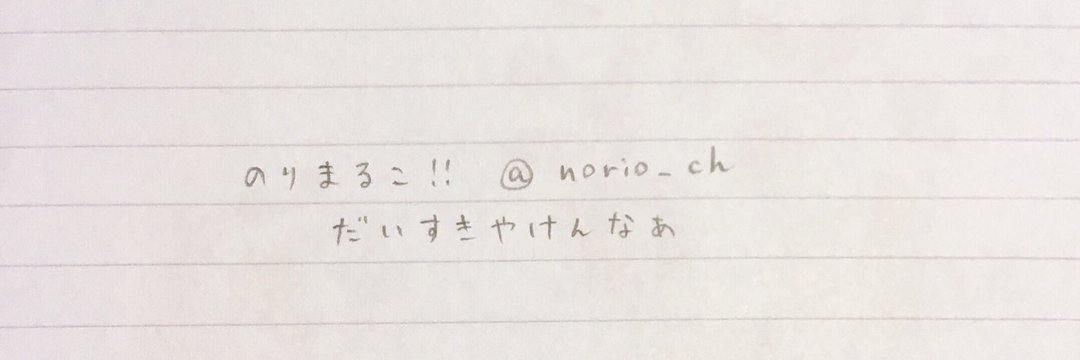 のりまるこ!! @norio_ch
だいすきやけんなあ